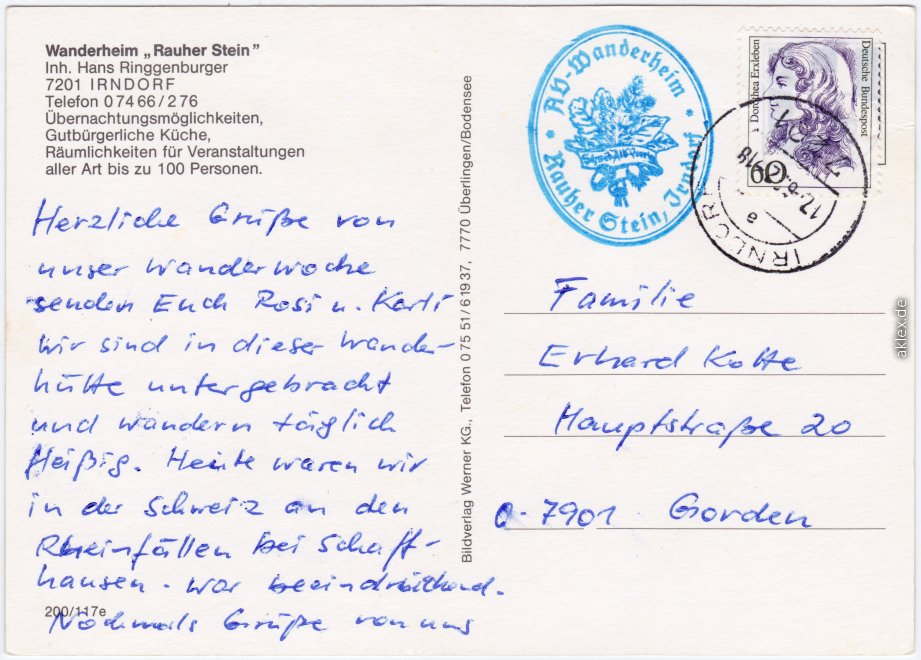 Wanderheim „Rauher Stein"
Inh. Hans Ringgenburger
7201 IRNDORF
Telefon 0 74 66 / 2 76
Übernachtungsmöglichkeiten,
Gutbürgerliche Küche,
Räumlichkeiten für Veranstaltungen
aller Art bis zu 100 Personen.
Herzliche Grüße von
unser Wanderwoche
senden Euch Rosi u. Karli
wir sind in dieser Wander-
hütte untergebracht
und wandern täglich
fleißig. Heute waren wir
in der Schweiz an den
Rheinfällen bei Schaff-
hausen. War beeindruckend.
Nochmals Grüße von uns
200/117e
Bildverlag Werner KG., Telefon 0 75 51 / 6 19 37, 7770 Überlingen/Bodensee
AV-Wanderheim
Rauher Stein, Irndorf
Dorothea Erxleben
Deutsche Bundespost
60
IRNDORF
a
Familie
Erhard Kotte
Hauptstraße 20
O-7901 Gorden
aklex.de